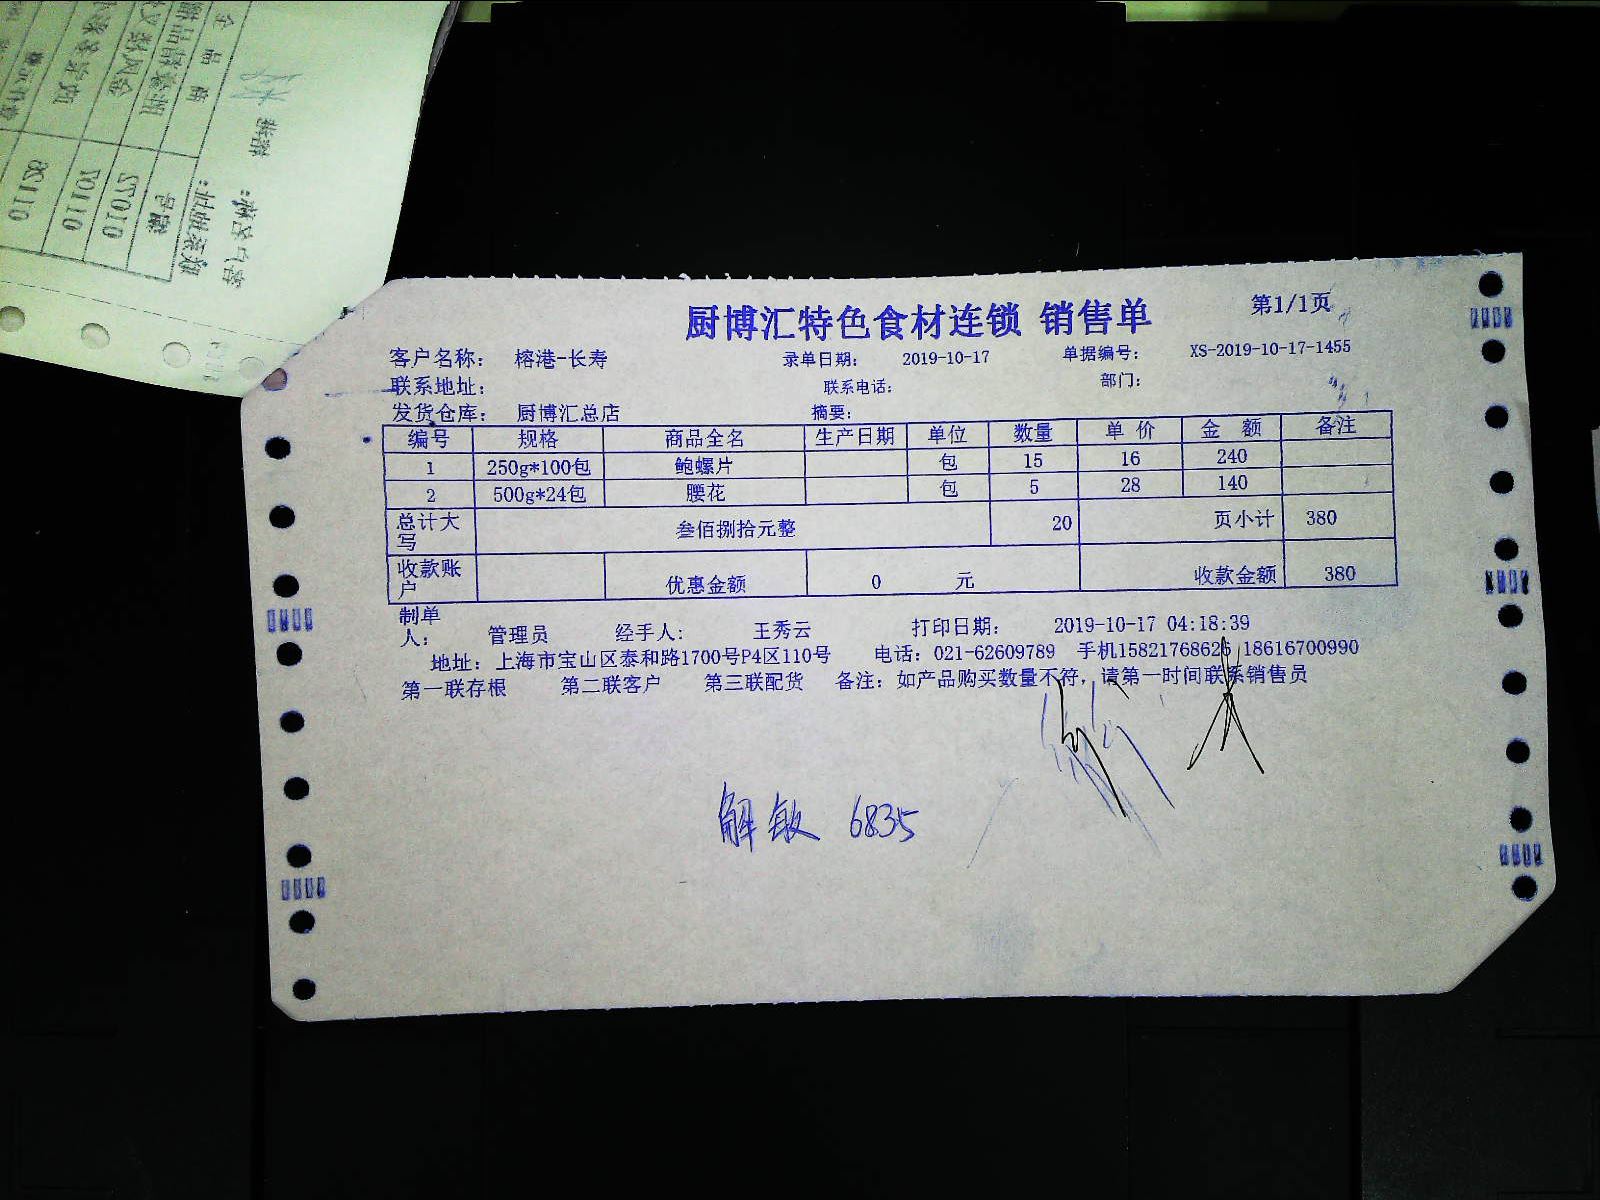 厨博汇特色食材连锁 销售单 第1/1页
客户名称： 榕港-长寿 录单日期： 2019-10-17 单据编号： XS-2019-10-17-1455
联系地址： 联系电话： 部门：
发货仓库： 厨博汇总店 摘要：
编号 规格 商品全名 生产日期 单位 数量 单价 金额 备注
1 250g*100包 鲍螺片 包 15 16 240
2 500g*24包 腰花 包 5 28 140
总计大写 叁佰捌拾元整 20 页小计 380
收款账户 优惠金额 0 元 收款金额 380
制单人： 管理员 经手人： 王秀云 打印日期： 2019-10-17 04:18:39
地址：上海市宝山区泰和路1700号P4区110号 电话：021-62609789 手机15821768626 18616700990
第一联存根 第二联客户 第三联配货 备注：如产品购买数量不符，请第一时间联系销售员
解敏 6835